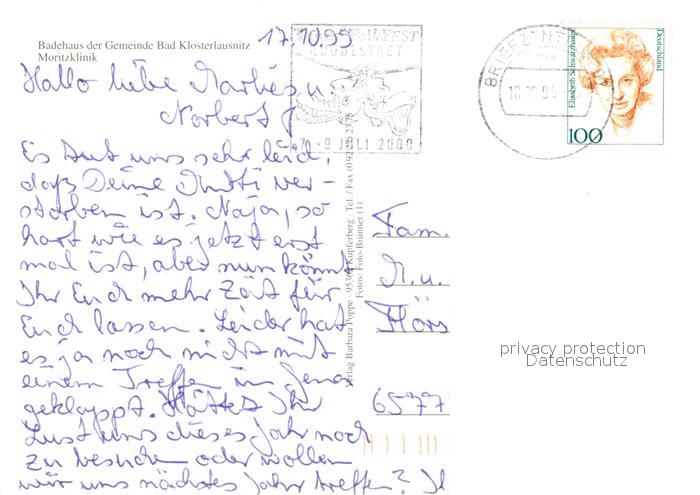 Badehaus der Gemeinde Bad Klosterlausnitz
Moritzklinik
17.10.99
Hallo liebe Marlies u.
Norbert!
Es tut uns sehr leid,
daß Deine Mutti ver-
storben ist. Naja, so
hart wie es jetzt erst
mal ist, aber nun könnt
Ihr Euch mehr Zeit für
Euch lassen. Leider hat
es ja noch nicht mit
einem Treffen in Jena
geklappt. Hättet Ihr
Lust uns dieses Jahr noch
zu besuchen oder wollen
wir uns nächstes Jahr treffen?
RUDOLSTADT
7.-9. JULI 2000
Verlag Barbara Poppe · Kupferberg · Tel. / Fax
Fotos: Foto-Brünner (1)
BRIEFZENTRUM
18.10.99
Elisabeth Schwarzhaupt
Deutschland
100
Fam.
M. u.
Hörs
6577
privacy protection
Datenschutz